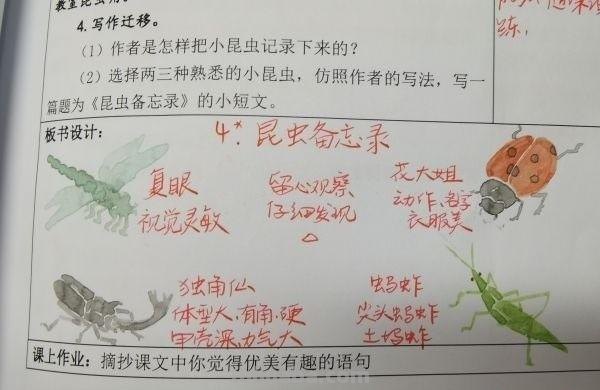 4.写作迁移。
（1）作者是怎样把小昆虫记录下来的？
（2）选择两三种熟悉的小昆虫，仿照作者的写法，写一
篇题为《昆虫备忘录》的小短文。
练.
板书设计：
4*.昆虫备忘录
复眼
视觉灵敏
留心观察
仔细发现
花大姐
动作、名字
衣服美
独角仙
体型大、有角、硬
甲壳深力气大
蚂蚱
尖头蚂蚱
土蚂蚱
课上作业：摘抄课文中你觉得优美有趣的语句